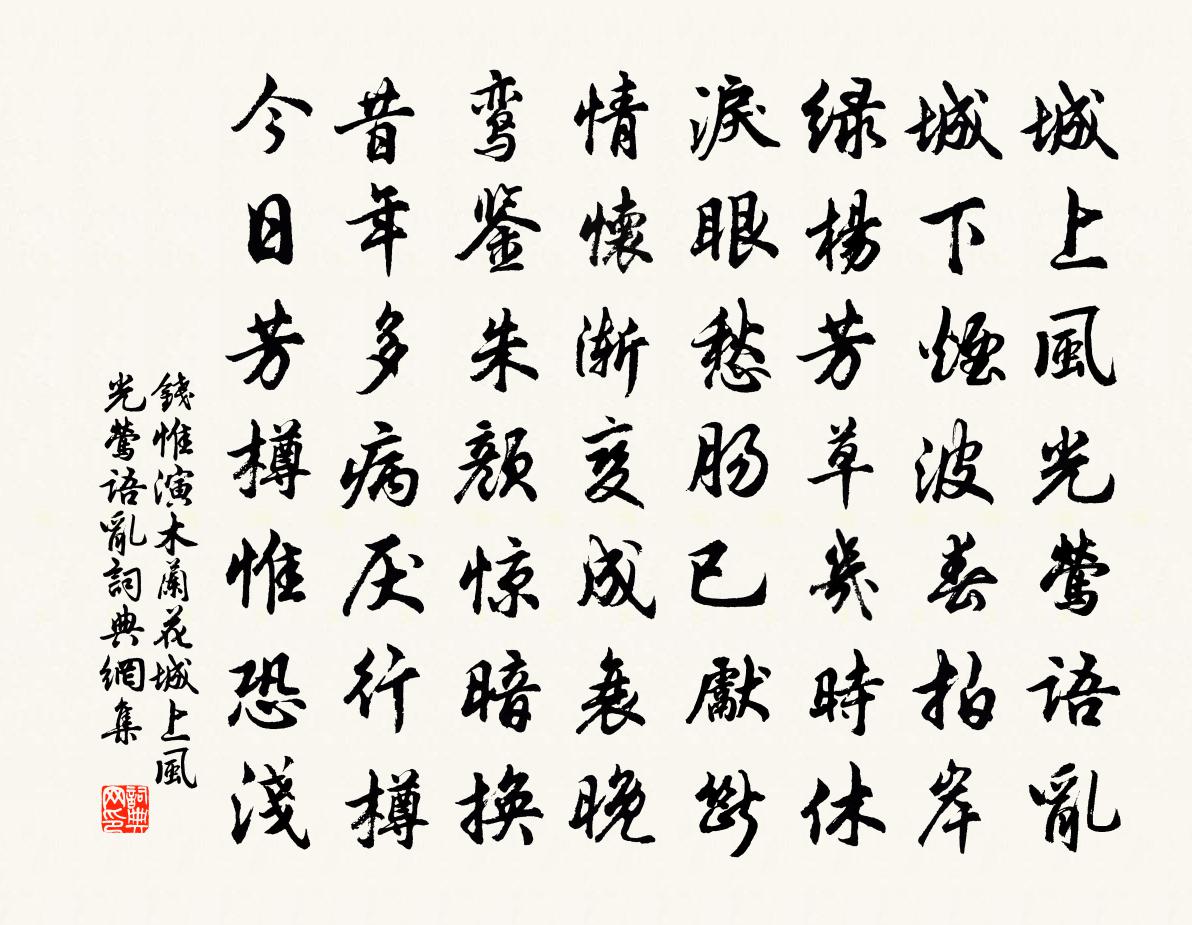 城上風光鶯語亂
城下煙波春拍岸
緑楊芳草幾時休
淚眼愁腸已獻斷
情懷漸变成衰晚
鸾鉴朱顏惊暗换
昔年多病厌行樽
今日芳樽惟恐淺
錢惟演木蘭花城上風
光鶯語亂詞典網集
詞典网印